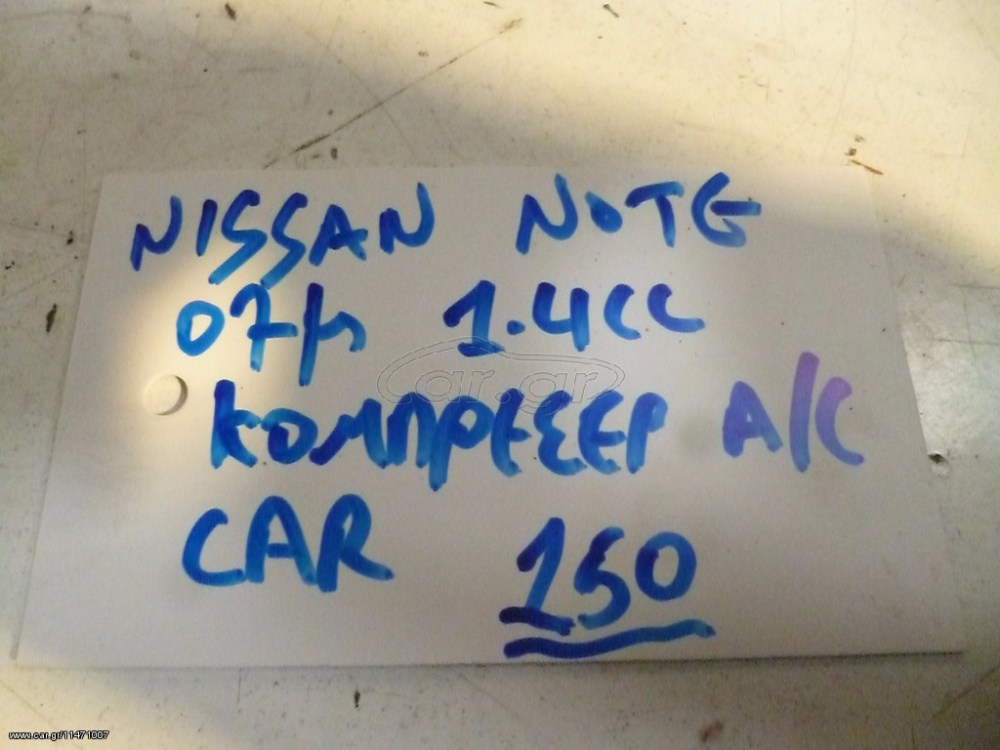 NISSAN NOTE
07μ 1.4CC
car.gr
ΚΟΜΠΡΕΣΕΡ A/C
CAR 150
www.car.gr/11471007